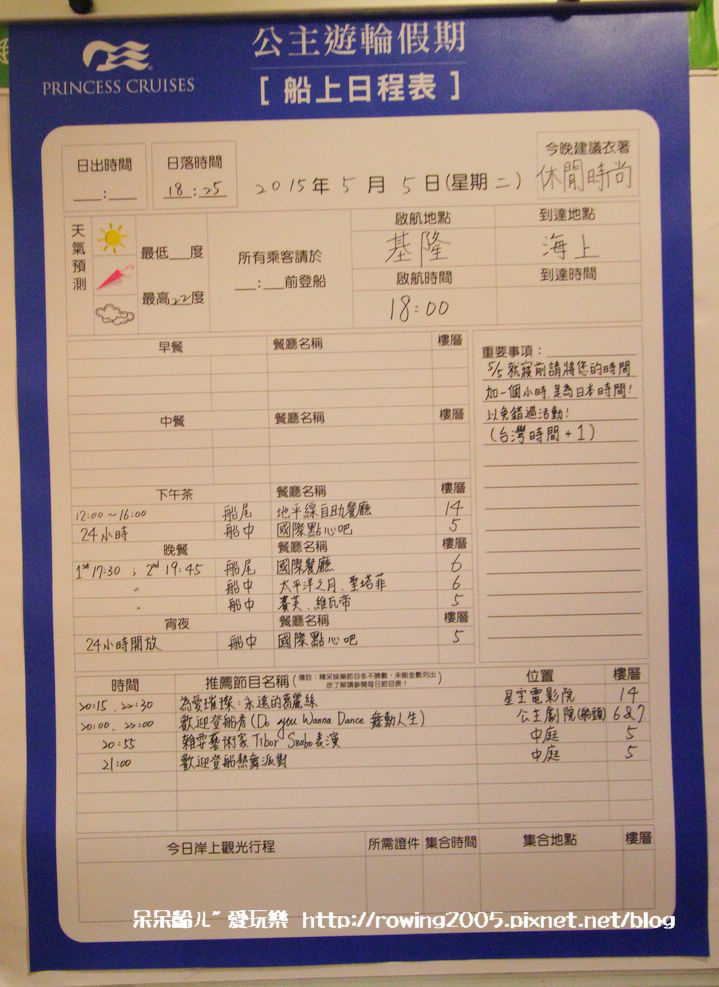 公主遊輪假期
PRINCESS CRUISES
[ 船上日程表 ]
日出時間
__:__
日落時間
18:25
2015年 5 月 5 日(星期二)
今晚建議衣著
休閒時尚
天氣預測
最低__度
最高22度
所有乘客請於
__:__前登船
啟航地點
基隆
啟航時間
18:00
到達地點
海上
到達時間
早餐 餐廳名稱 樓層
中餐 餐廳名稱 樓層
下午茶 餐廳名稱 樓層
12:00~16:00 船尾 地平線自助餐廳 14
24小時 船中 國際點心吧 5
晚餐 餐廳名稱 樓層
1st 17:30 ; 2nd 19:45 船尾 國際餐廳 6
〃 船中 太平洋之月、聖塔菲 6
〃 船中 賽芙、維瓦帝 5
宵夜 餐廳名稱 樓層
24小時開放 船中 國際點心吧 5
重要事項：
5/5就寢前請將您的時間
加一個小時,是為日本時間!
以免錯過活動!
(台灣時間+1)
時間 推薦節目名稱(備註：精采娛樂節目多不勝數，未能全數列出 欲了解請參閱每日節目表！) 位置 樓層
20:15、22:30 為愛璀璨:永遠的葛麗絲 星空電影院 14
20:00、22:00 歡迎登船秀(Do you Wanna Dance 舞動人生) 公主劇院(船頭) 6&7
20:55 雜耍藝術家Tibor Szabo表演 中庭 5
21:00 歡迎登船熱舞派對 中庭 5
今日岸上觀光行程 所需證件 集合時間 集合地點 樓層
呆呆齡ㄦ" 愛玩樂 http://rowing2005.pixnet.net/blog